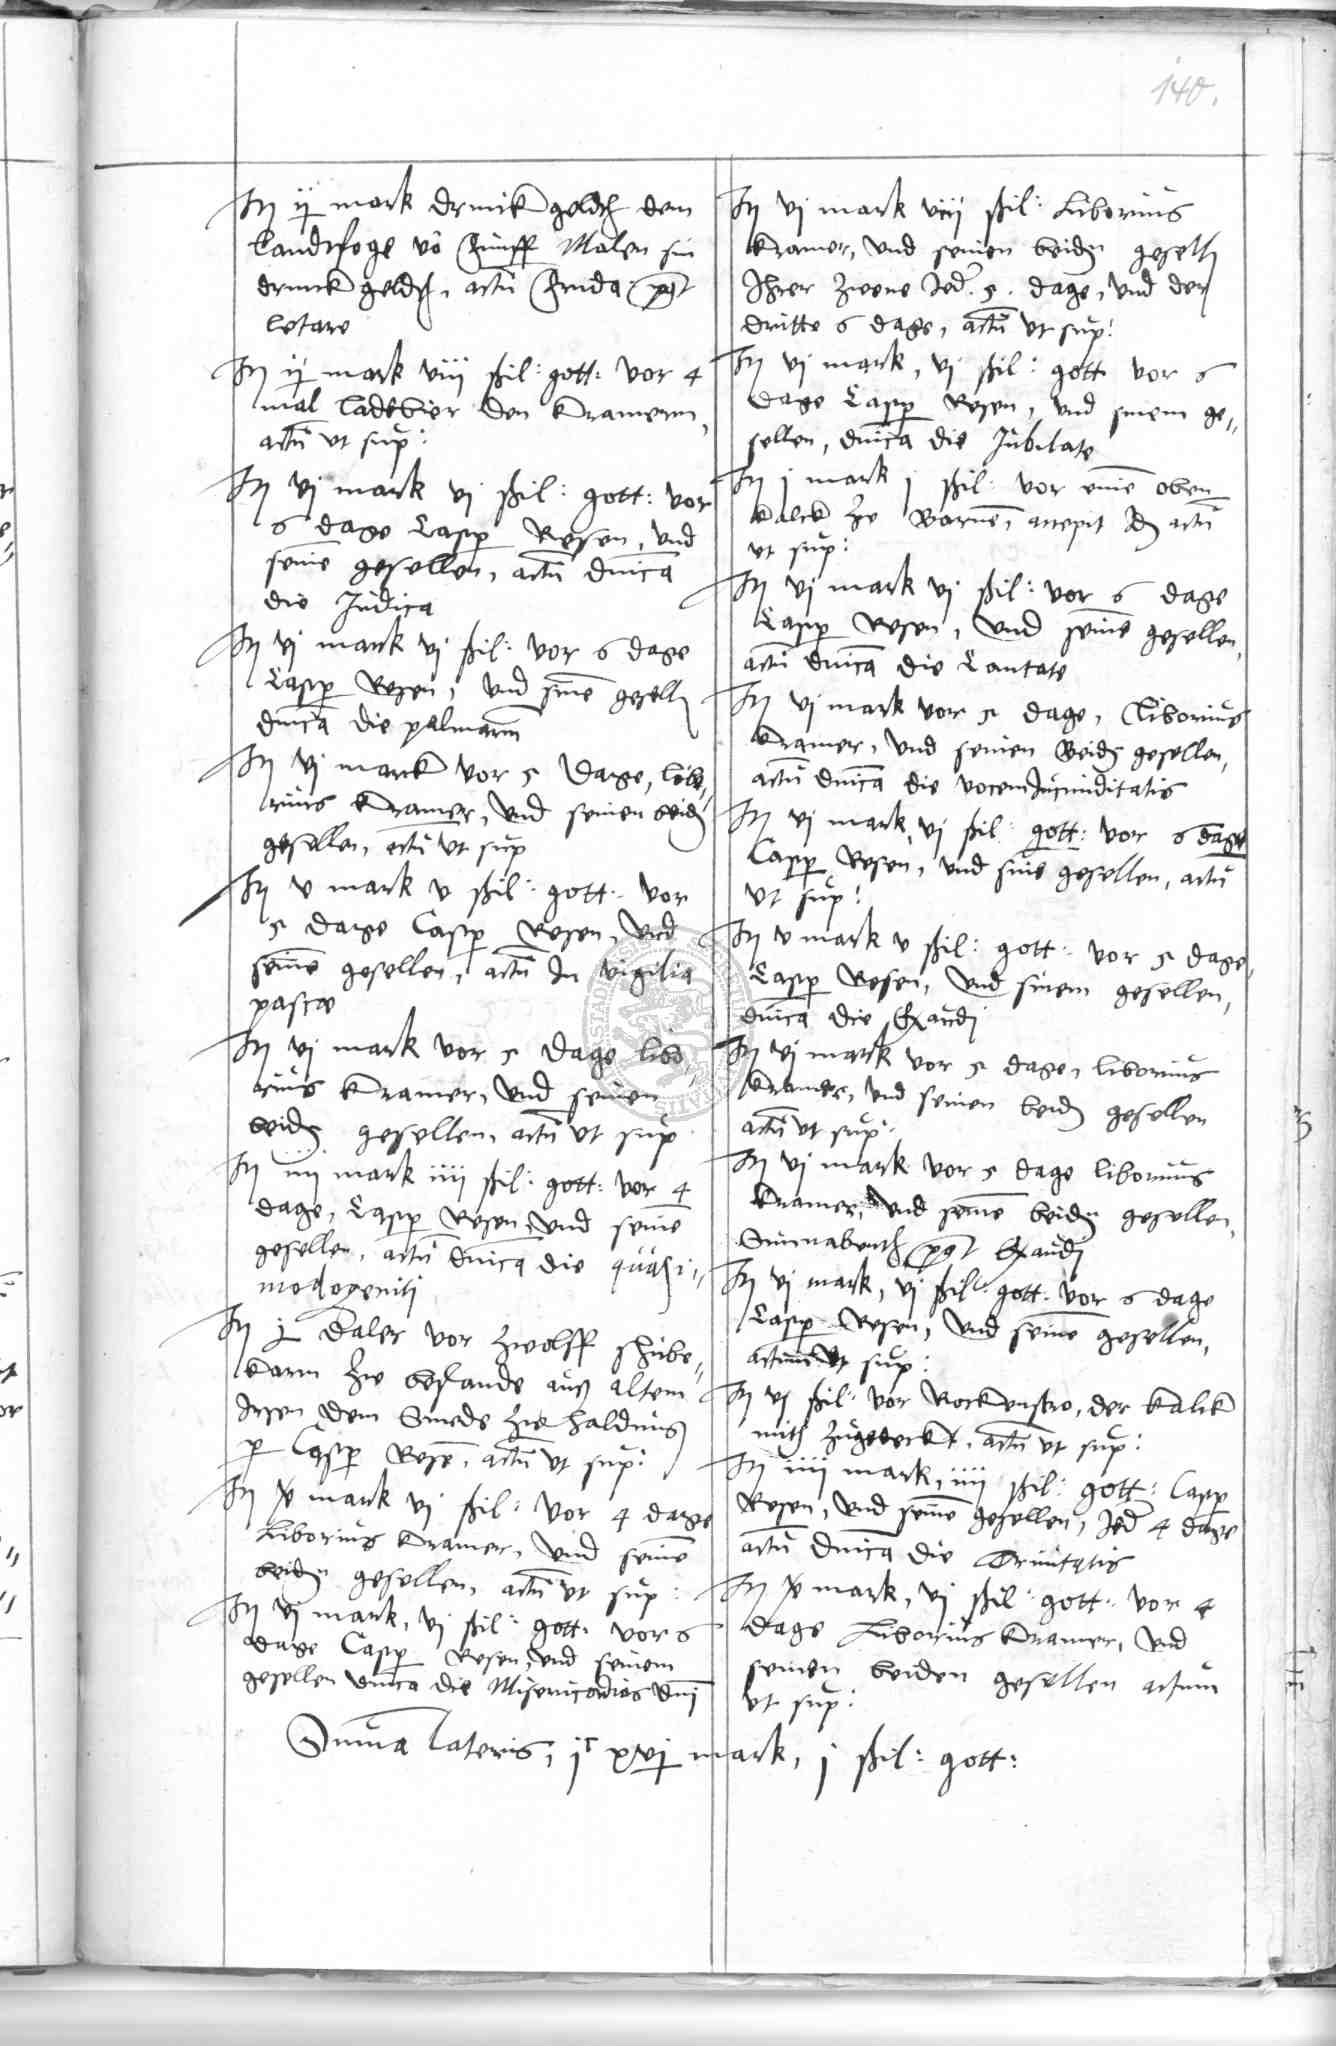 140.
Itm ij mark drinckgeldt dem
landtfoge võ funff Malen sin
drinckgeldt, actũ frida post
letare
Itm ij mark viij ßil: gott: vor 4
mal ladebier den kramern,
actũ ut sup:
Itm vj mark vj ßil: gott: vor
6 dage Casp Resen, und
seinẽ gesellen, actũ dnica
die Judica
Itm vj mark vj ßil: vor 6 dage
Casp Resen, und sinẽ gesell
dnica die palmarũ
Itm vj marck vor 5 dage, libo„
rius kramer, und seinen beidn
gesellen, actũ ut sup
Itm v mark v ßil: gott: vor
5 dage Casp Resen, und
seinẽ gesellen, actũ In vigilia
pasce
Itm vj mark vor 5 dage libo„
rius kramer, und seinen
beidn gesellen, actũ ut sup
Itm iiij mark iiij ßil: gott: vor 4
dage, Casp Resen, und seinẽ
gesellen, actũ dnica die quasi„
modogeniti
Itm j daler vor zwolff schube„
karn zu aus altem
Isen dem Smede zu haldnus
p Casp Resẽ, actũ ut sup:
Itm mark vj ßil: vor 4 dage
Liborius kramer, und seinẽ
beidn gesellen, actũ ut sup:
Itm vj mark, vj ßil: gott: vor 6
dage Casp Resen, und seinem
gesellen dnica die Misericordias dni
Itm vj mark viij ßil: Liborius
kramer, und seinen beidn gesell
Ihrer zwene Jed. 5. dage, und der
dritte 6 dage, actũ ut sup:
Itm vj mark, vj ßil: gott vor 6
dage Casp Resen, und sinem ge„
sellen, dnica die Jubilate
Itm j mark j ßil: vor einẽ oben
kalck zu Barnẽ, accepit Id actũ
ut sup:
Itm vj mark vj ßil: vor 6 dage
Casp Resen, und seinẽ gesellen,
actũ dnica die Cantate
Itm vj mark vor 5 dage, Liborius
kramer, und seinen beidn gesellen,
actũ dnica die vocem Jucunditatis
Itm vj mark, vj ßil: gott: vor 6 dage
Casp Resen, und sinẽ gesellen, actũ
ut sup:
Itm v mark v ßil: gott: vor 5 dage,
Casp Resen, und sinem gesellen,
dnica die Exaudi
Itm vj mark vor 5 dage, liborius
kramer, und seinen beidn gesellen
actũ ut sup:
Itm vj mark vor 5 dage liborius
kramer, und seinẽ beidn gesellen,
Sunnabenth post Exaudi
Itm vj mark, vj ßil: gott: vor 6 dage
Casp Resen, und seinẽ gesellen,
actum ut sup:
Itm vj ßil: vor Rockenstro, der kalck
mith zugedeckt, actũ ut sup:
Itm iiij mark, iiij ßil: gott: Casp
Resen, und seinẽ gesellen, Jed 4 dage
actũ dnica die Trinitatis
Itm mark, vj ßil: gott: vor 4
dage Liborius kramer, und
seinen beiden gesellen actum
ut sup:
Suma lateris, jc xvj mark, j ßil: gott: